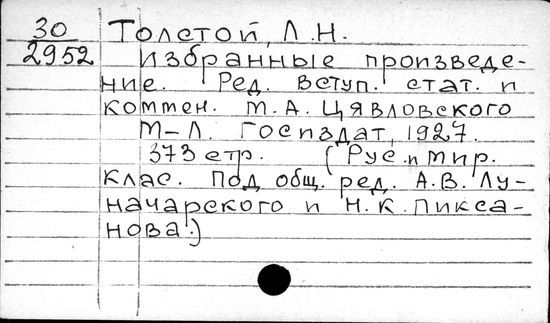 30 Толстой, Л.Н.
2952 Избранные произведе-
ние. Ред. вступ. стат. и
коммен. М.А. Цявловского
М-Л. Госиздат, 1927.
373 стр. (Рус. и мир.
клас. Под общ. ред. А.В. Лу-
начарского и Н.К. Пикса-
нова.)